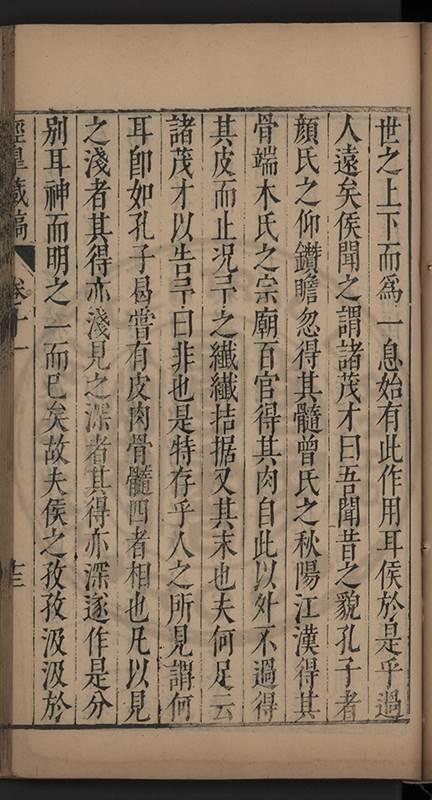 世之上下而爲一息始有此作用耳侯於是乎過
人遠矣侯聞之謂諸茂才曰吾聞昔之貌孔子者
顏氏之仰鑽瞻忽得其髓曾氏之秋陽江漢得其
骨端木氏之宗廟百官得其肉自此以外不過得
其皮而止况予之纖纖拮据又其末也夫何足云
諸茂才以告予曰非也是特存乎人之所見謂何
耳卽如孔子曷嘗有皮肉骨髓四者相也凡以見
之淺者其得亦淺見之深者其得亦深遂作是分
别耳神而明之一而已矣故夫侯之孜孜汲汲於
經皐藏稿
卷十一
十三